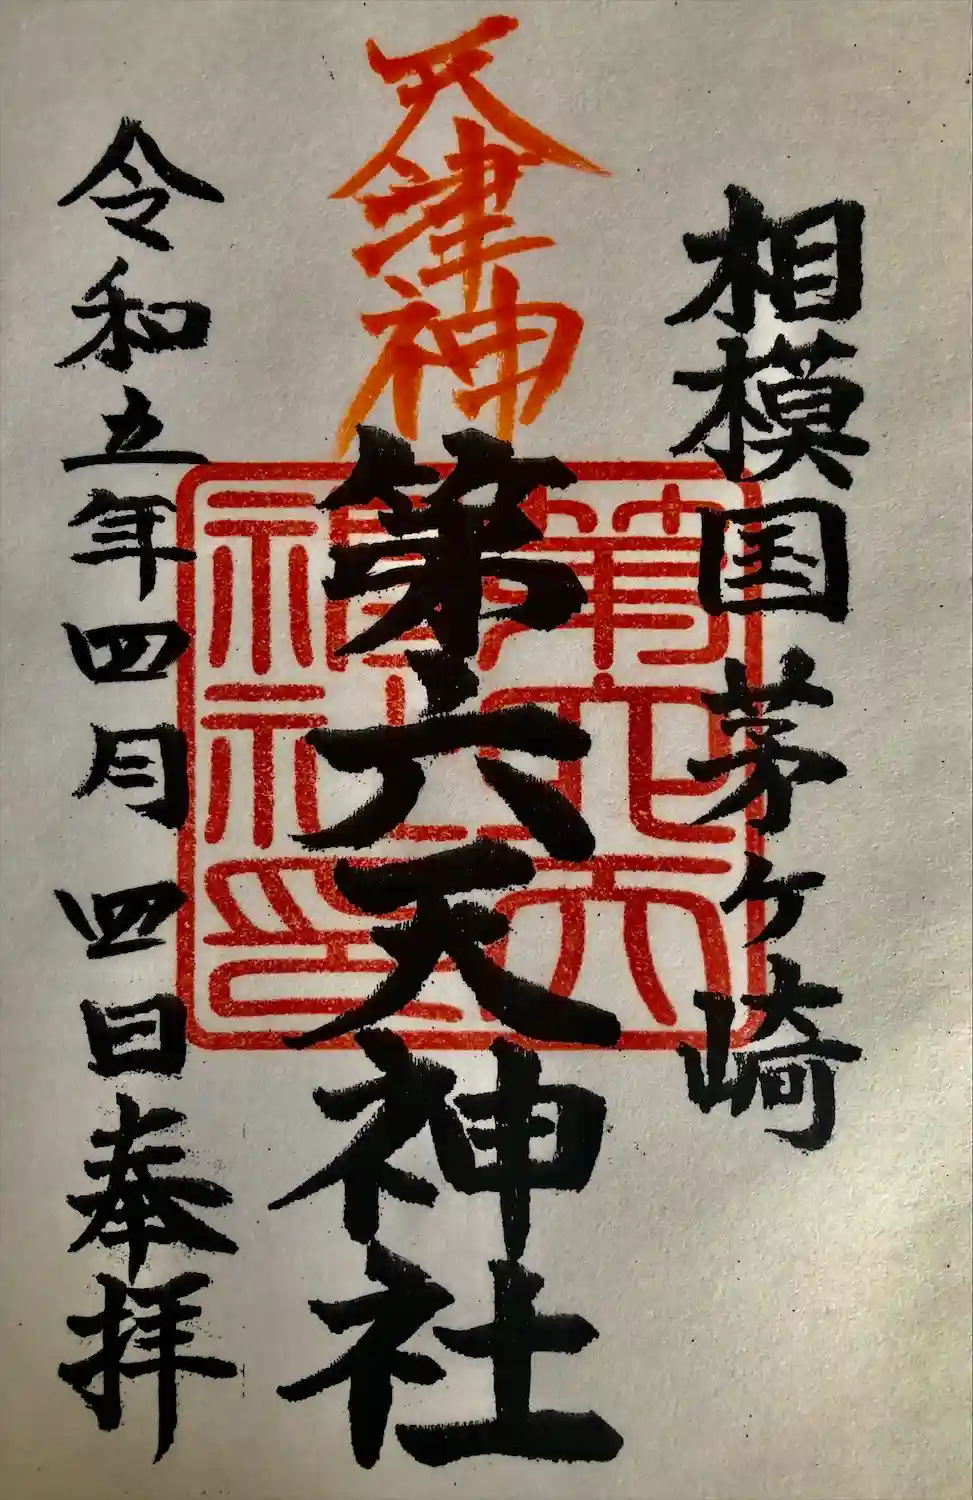 相模国茅ヶ崎
天津神
第六天神社
第六天神社印
令和五年四月四日奉拝